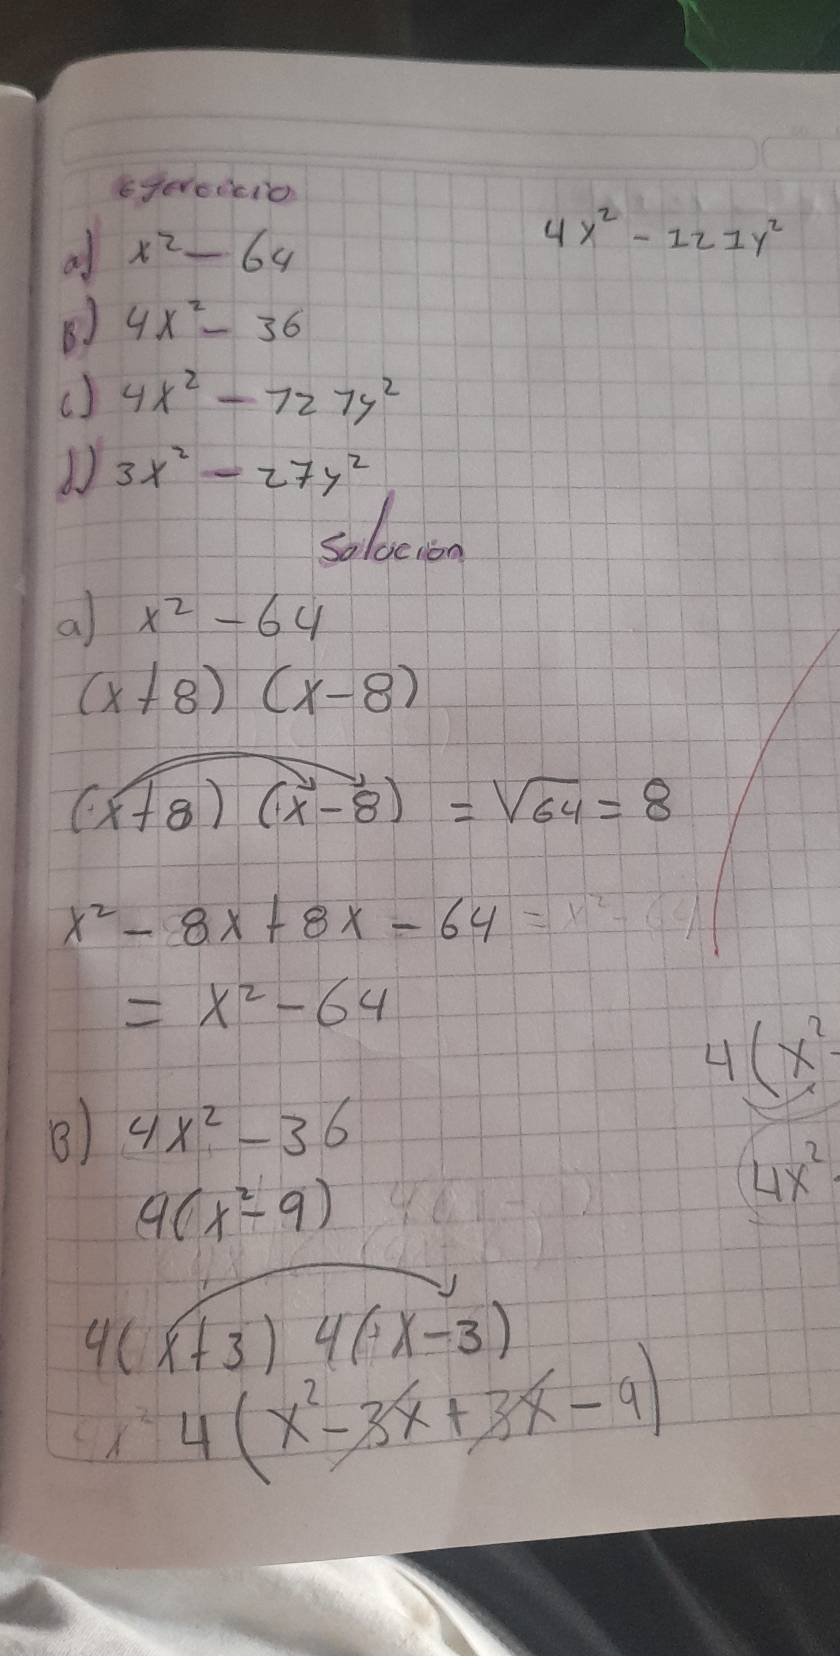 Ejercicio
a) x² - 64
4x² - 121y²
B) 4x² - 36
c) 4x² - 121y²
d) 3x² - 27y²
Solución
a) x² - 64
(x+8) (x-8)
(x+8) (x-8) = √64 = 8
x² - 8x + 8x - 64 = x² - 64
= x² - 64
4(x² -
B) 4x² - 36
4(x² - 9)
4x²
4(x+3) 4(x-3)
4(x² - 3x + 3x - 9)